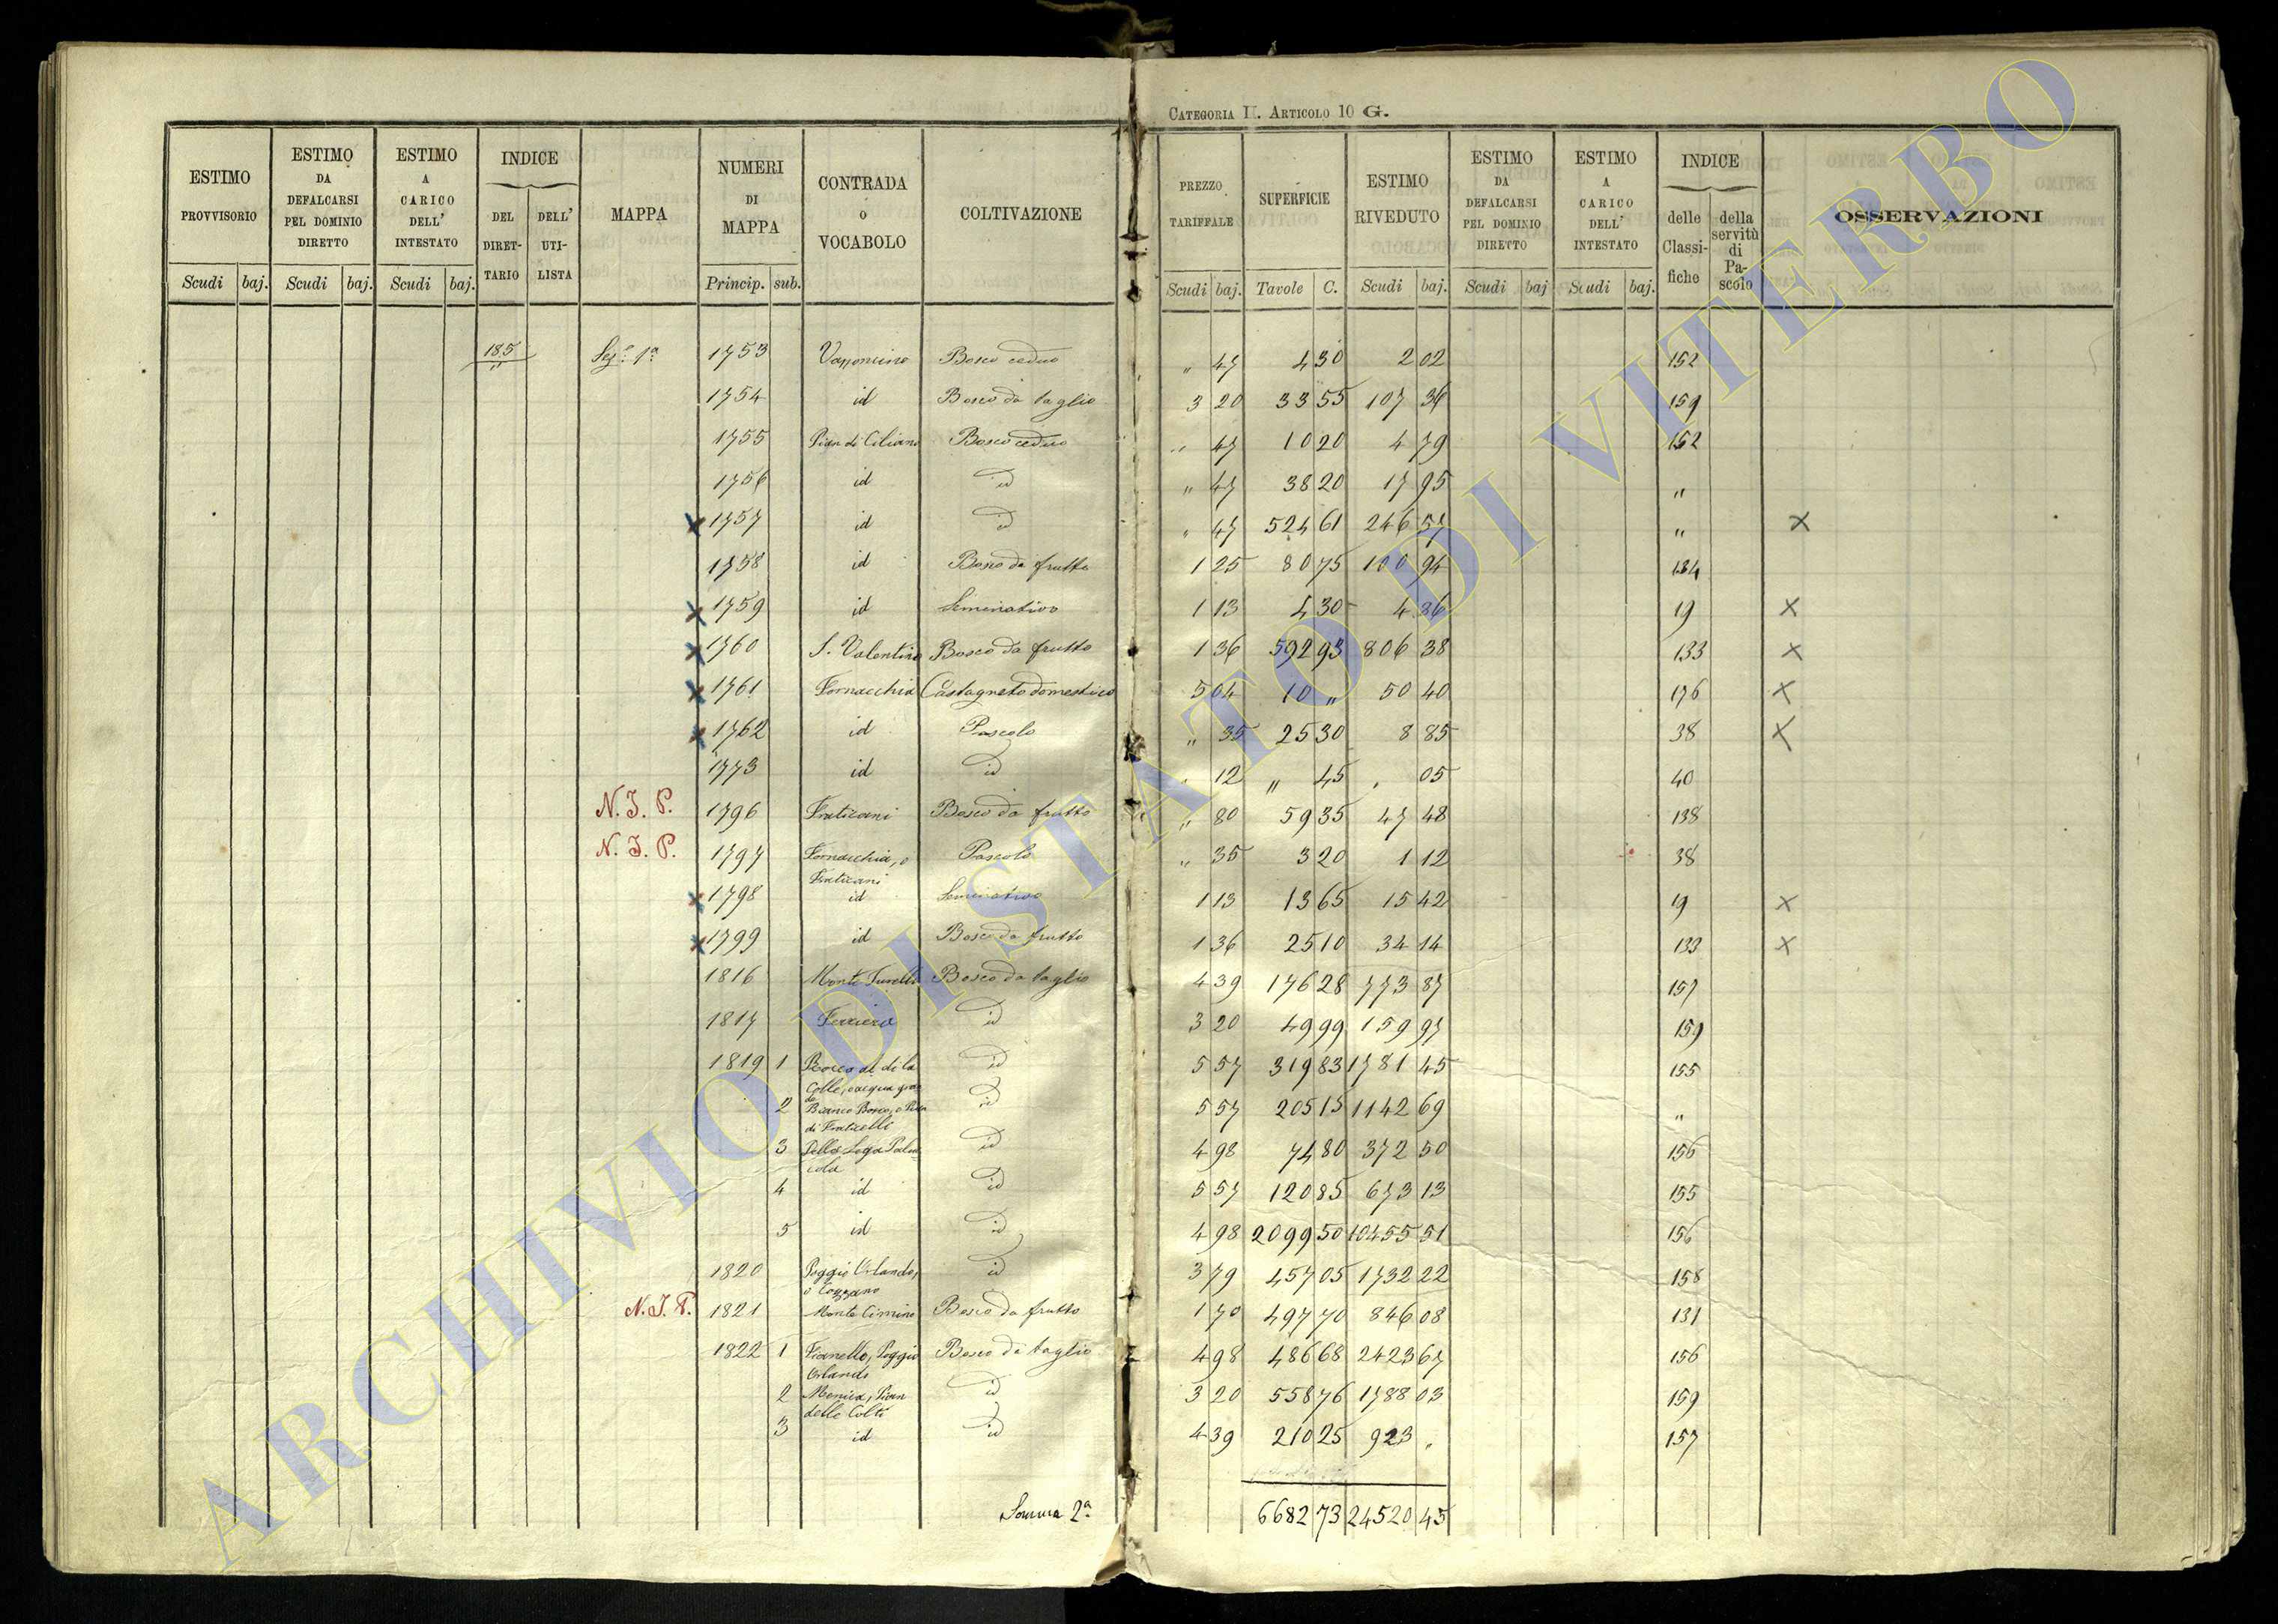 CATEGORIA II. ARTICOLO 10 G.
ESTIMO PROVVISORIO Scudi baj.
ESTIMO DA DEFALCARSI PEL DOMINIO DIRETTO Scudi baj.
ESTIMO A CARICO DELL' INTESTATO Scudi baj.
INDICE DEL DIRETTARIO DELL' UTILISTA
MAPPA
NUMERI DI MAPPA Princip. sub.
CONTRADA O VOCABOLO
COLTIVAZIONE
PREZZO TARIFFALE Scudi baj.
SUPERFICIE Tavole C.
ESTIMO RIVEDUTO Scudi baj.
ESTIMO DA DEFALCARSI PEL DOMINIO DIRETTO Scudi baj
ESTIMO A CARICO DELL' INTESTATO Scudi baj.
INDICE delle Classifiche della servitù di Pascolo
OSSERVAZIONI
185 Sez.e 1a 1753 Vapponcino Bosco ceduo " 47 4 30 2 02 152
1754 id Bosco da taglio 3 20 33 55 107 36 159
1755 Pian di Ciliano Bosco ceduo " 47 10 20 4 79 152
1756 id id " 47 38 20 17 95 "
x 1757 id id " 47 524 61 246 57 " x
1758 id Bosco da frutto 1 25 80 75 100 94 134
x 1759 id Seminativo 1 13 4 30 4 86 19 x
x 1760 S. Valentino Bosco da frutto 1 36 592 93 806 38 133 x
x 1761 Fornacchia Castagneto domestico 5 04 10 " 50 40 176 x
x 1762 id Pascolo " 35 25 30 8 85 38 x
1773 id id " 12 " 45 " 05 40
N. I. P. 1796 Fraticani Bosco da frutto " 80 59 35 47 48 138
N. I. P. 1797 Fornacchia, o Fraticani Pascolo " 35 3 20 1 12 38
x 1798 id Seminativo 1 13 13 65 15 42 19 x
x 1799 id Bosco da frutto 1 36 25 10 34 14 133 x
1816 Monte Turello Bosco da taglio 4 39 176 28 773 87 157
1817 Ferriera id 3 20 49 99 159 97 159
1819 1 Rocca al di la Colle, o acqua grande id 5 57 319 83 1781 45 155
2 Bianco Bosco, o Pian di Fraticelli id 5 57 205 15 1142 69 "
3 id 4 98 74 80 372 50 156
4 id id 5 57 120 85 673 13 155
5 id id 4 98 2099 50 10455 51 156
1820 Poggio Orlando, o Cozzano id 3 79 457 05 1732 22 158
N. I. P. 1821 Monte Cimino Bosco da frutto 1 70 497 70 846 08 131
1822 1 Pianello, Poggio Orlando Bosco da taglio 4 98 486 68 2423 67 156
2 Menica, Pian delle Colti id 3 20 558 76 1788 03 159
3 id id 4 39 210 25 923 " 157
Somma 2a 6682 73 24520 45
ARCHIVIO DI STATO DI VITERBO